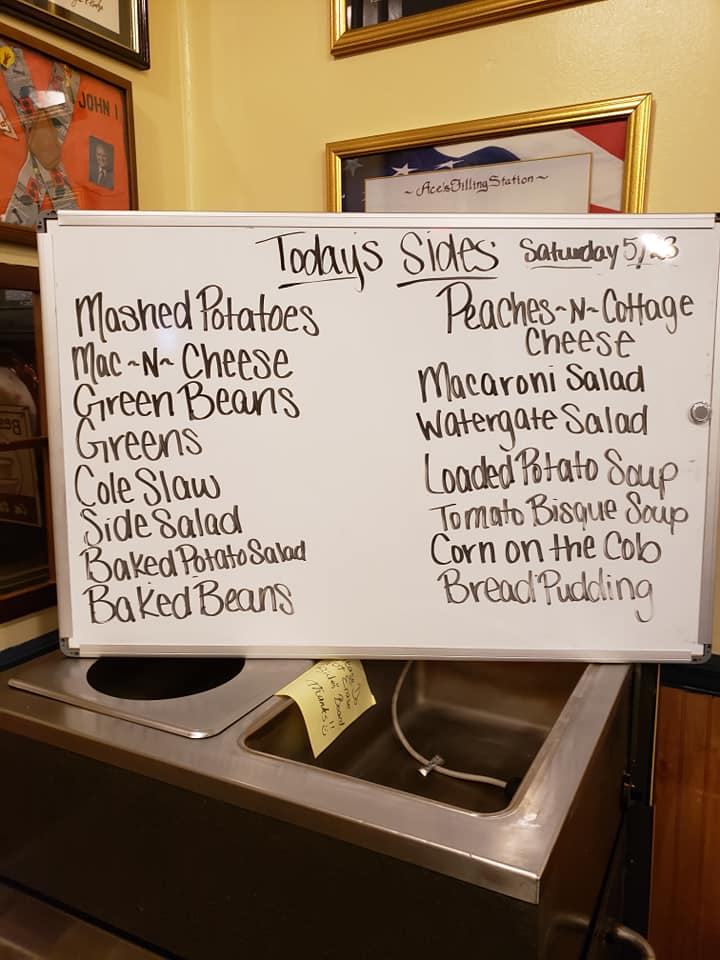 JOHN 1
~ Ace's Filling Station ~
Today's Sides Saturday 5/23
Mashed Potatoes
Mac~N~ Cheese
Green Beans
Greens
Cole Slaw
Side Salad
Baked Potato Salad
Baked Beans
Peaches~N~Cottage
Cheese
Macaroni Salad
Watergate Salad
Loaded Potato Soup
Tomato Bisque Soup
Corn on the Cob
Bread Pudding
Do
Erase
Board
Thanks!!